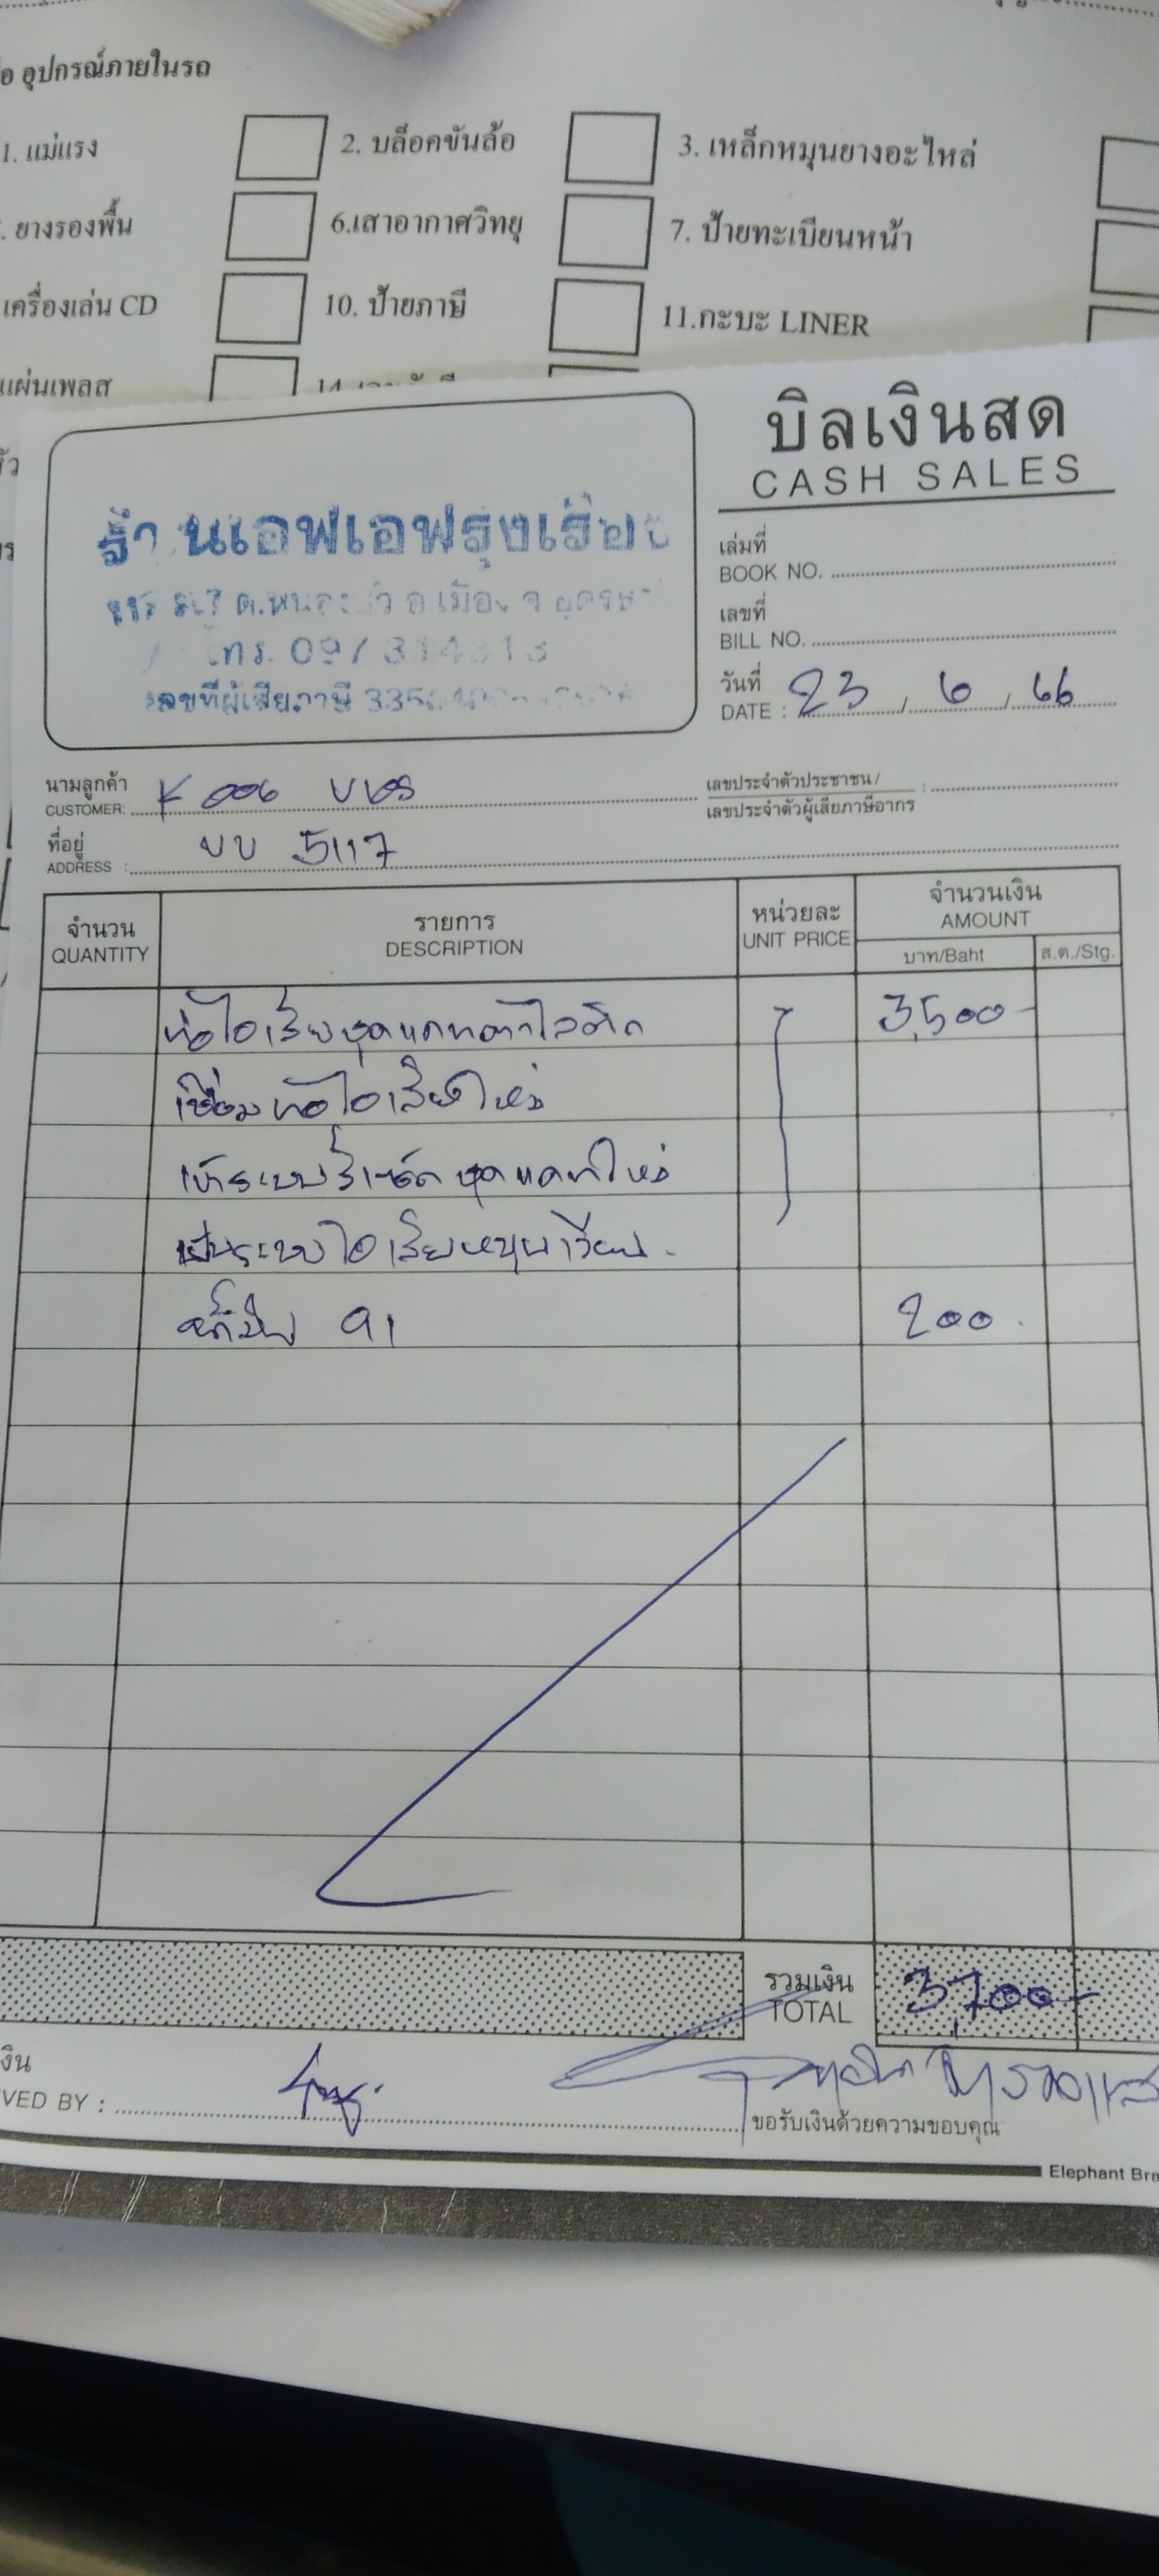 อุปกรณ์ภายในรถ
1. แม่แรง
2. บล็อคขันล้อ
3. เหล็กหมุนยางอะไหล่
ยางรองพื้น
6.เสาอากาศวิทยุ
7. ป้ายทะเบียนหน้า
เครื่องเล่น CD
10. ป้ายภาษี
11.กะบะ LINER
แผ่นเพลส
14.
บิลเงินสด
CASH SALES
ร้านเอฟเอฟรุ่งเรือง
โทร.
เลขที่ผู้เสียภาษี
เล่มที่
BOOK NO.
เลขที่
BILL NO.
วันที่
DATE : 23 / 6 / 66
นามลูกค้า
CUSTOMER:
เลขประจำตัวประชาชน /
เลขประจำตัวผู้เสียภาษีอากร :
ที่อยู่
ADDRESS : บบ 5117
จำนวน
QUANTITY
รายการ
DESCRIPTION
หน่วยละ
UNIT PRICE
จำนวนเงิน
AMOUNT
บาท/Baht
ส.ต./Stg.
ท่อไอเสีย 3,500-
เชื่อมท่อไอเสียใหม่
ใหม่
ไอเสียหมุนเวียน
91 200
รวมเงิน
TOTAL
3,700-
งิน
VED BY :
ขอรับเงินด้วยความขอบคุณ
Elephant Bra